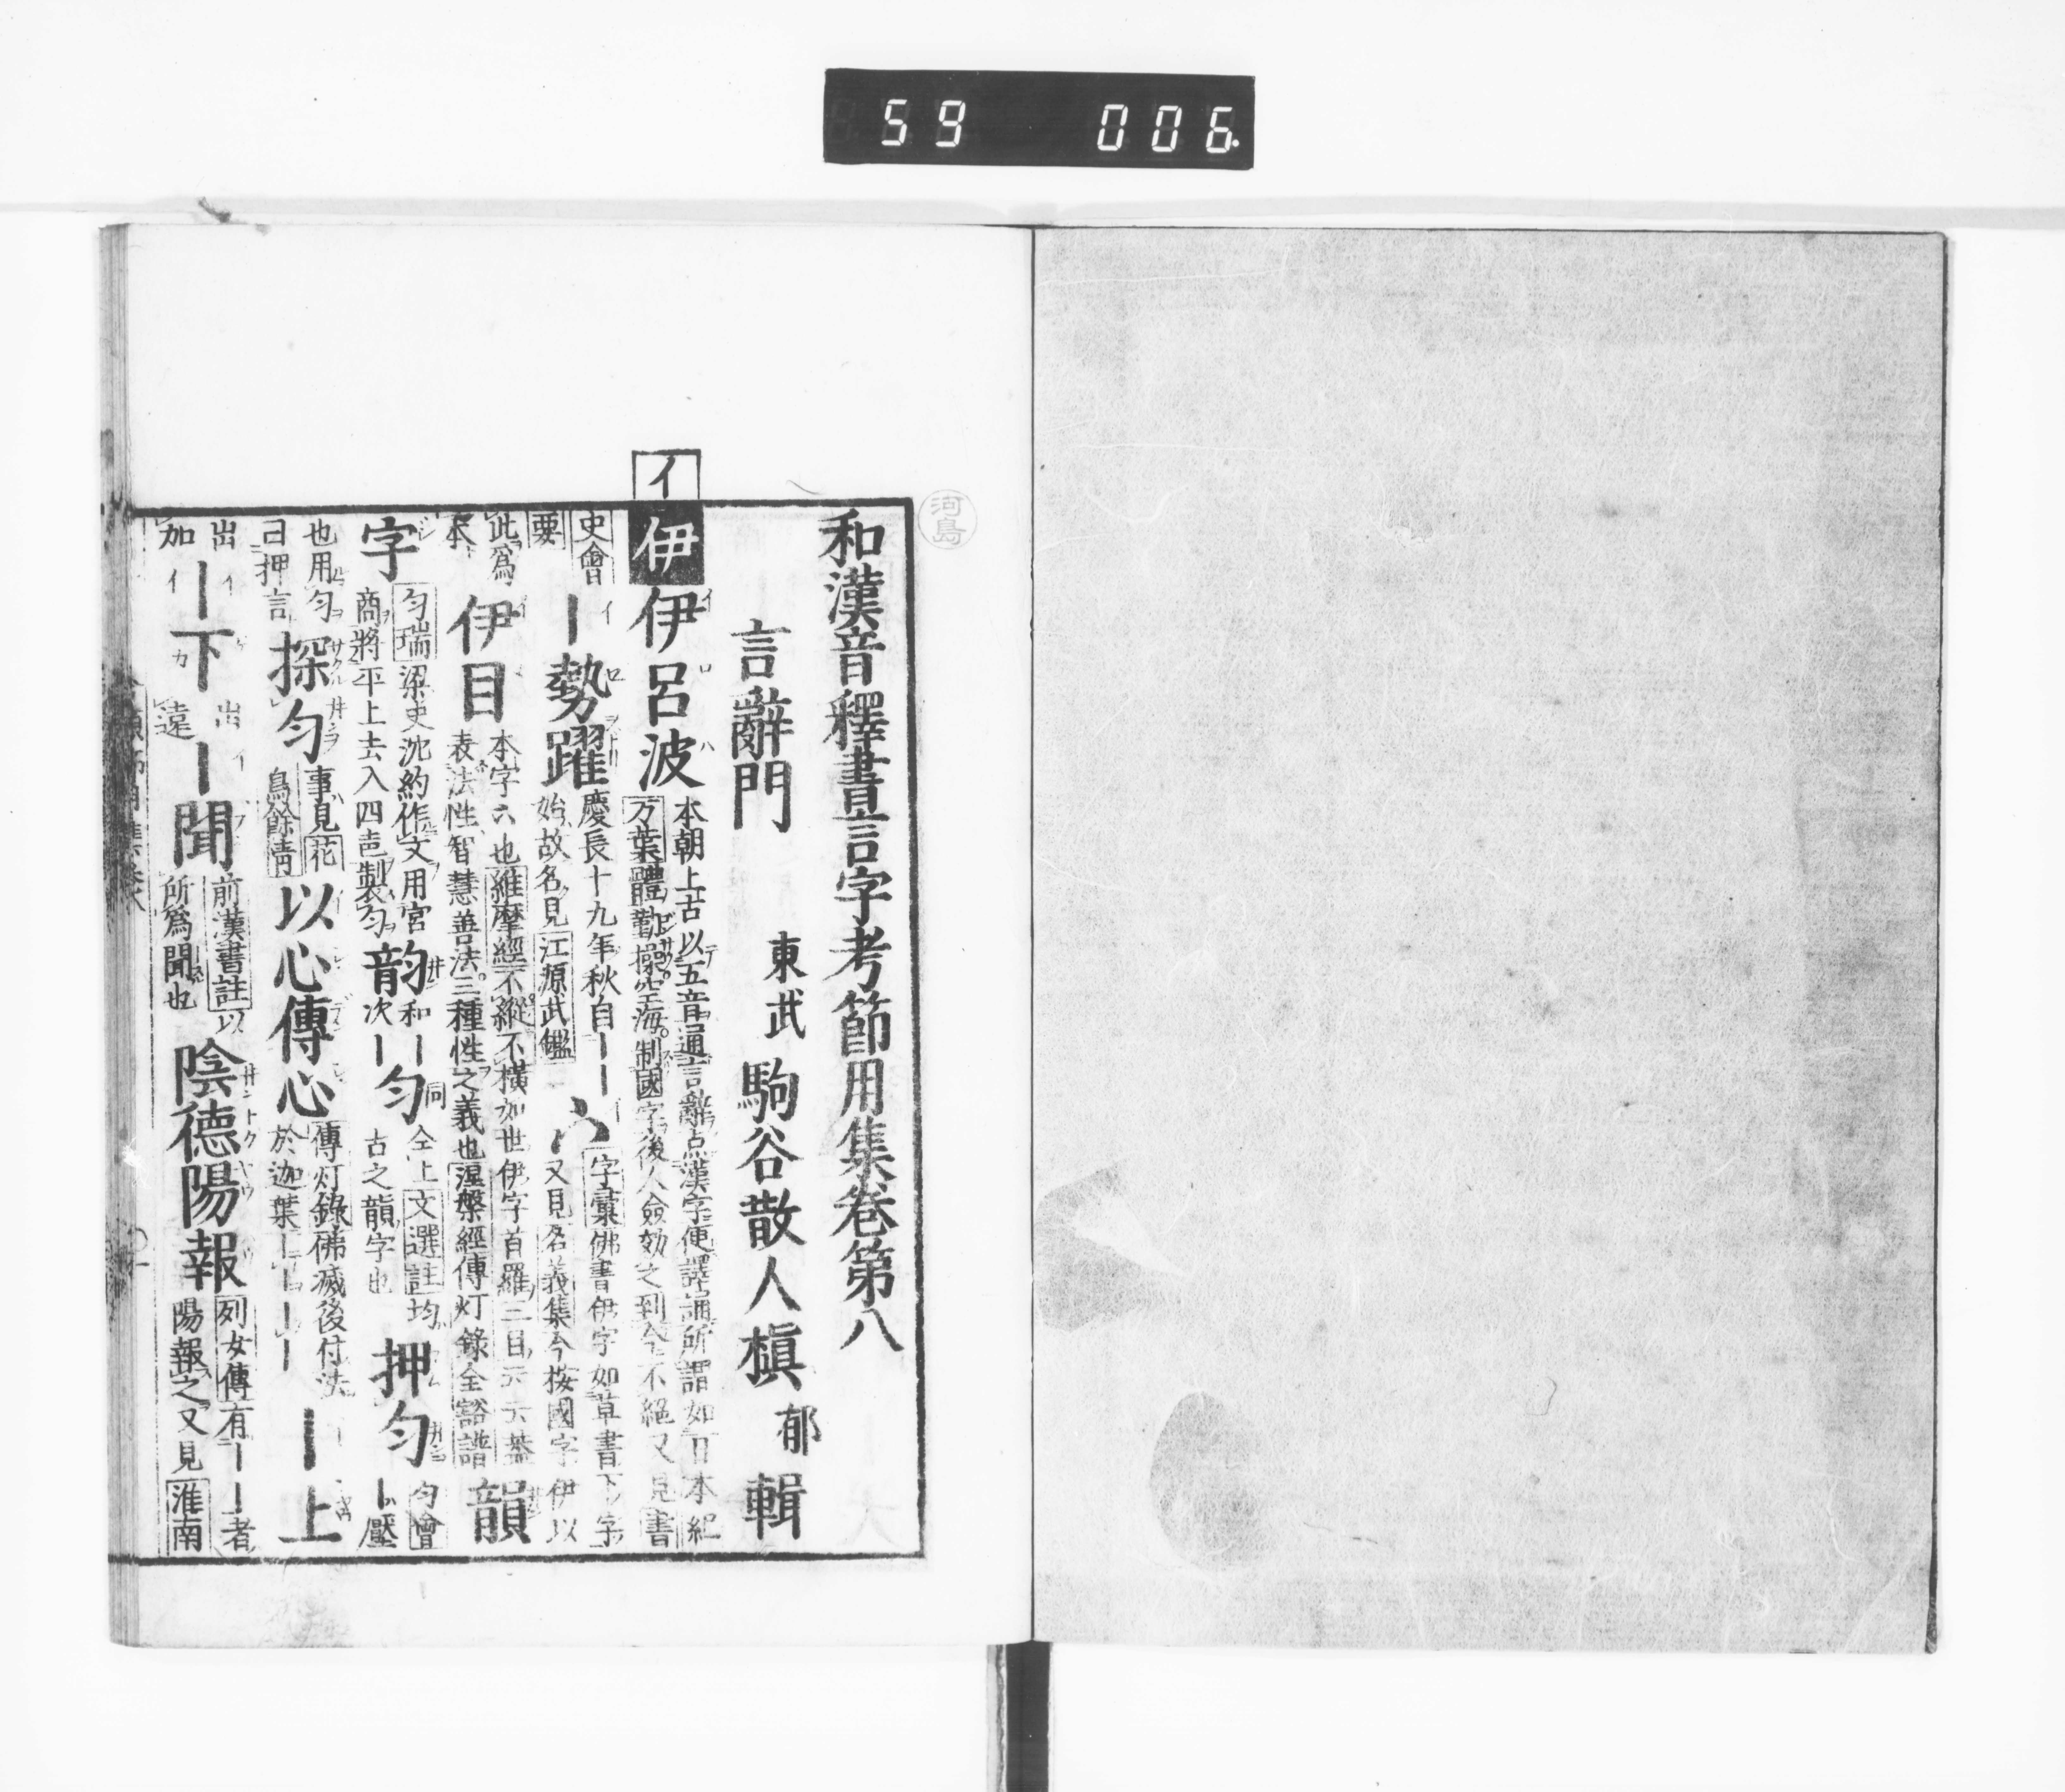 59 006
河島
和漢音釋書言字考節用集卷第八
言辭門 東武 駒谷散人槇 郁 輯
イ
伊 伊呂波 本朝上古以五音通言辭点漢字便譯誦所謂如日本紀
万葉體勤操空海制國字後人僉効之到今不絕又見書
史會
要 ー勢躍 慶長十九年秋自ーー
始故名見江源武鑑 字彙佛書伊字如草書下字
又見名義集今按國字伊以
此爲
本 伊目 本字六也維摩經不縱不橫如世伊字首羅三目
表法性智慧善法三種性之義也涅槃經傳灯錄全谿譜 韻
字 匀瑞梁史沈約作文用宮
商將平上去入四声製匀 韵 和ー
次ー 匀 同 仝上文選註均
古之韻字也 押匀 匀會
ー壓
也用匀
曰押言 探匀 事見花
鳥餘情 以心傳心 傳灯錄佛滅後付法
於迦葉ーーーー ー上
出
加 ー下 出
遠 ー聞 前漢書註以
所爲聞也 陰德陽報 列女傳有ーー者
陽報之又見淮南